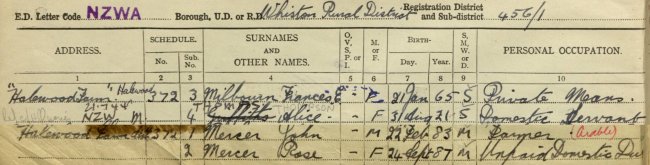 E.D. Letter Code NZWA Borough, U.D. or R.D. Whiston Rural District Registration District and Sub-district 456/1
ADDRESS. SCHEDULE. SURNAMES AND OTHER NAMES. O., V., S., P. or I. M. or F. BIRTH— S. M. W. or D. PERSONAL OCCUPATION.
No. Sub. No. Day. Year.
1 2 3 4 5 6 7 8 9 10
"Halewood Farm" Halewood 372 3 Milbourn Frances E - F 21 Jan 65 S Private Means.
NZW M. 4 Alice - - F 31 Aug 21 S Domestic Servant
Halewood 372 1 Mercer John - - M 22 Feb 83 M Farmer (Arable)
2 Mercer Rose - F 24 Sept 87 M Unpaid Domestic Du